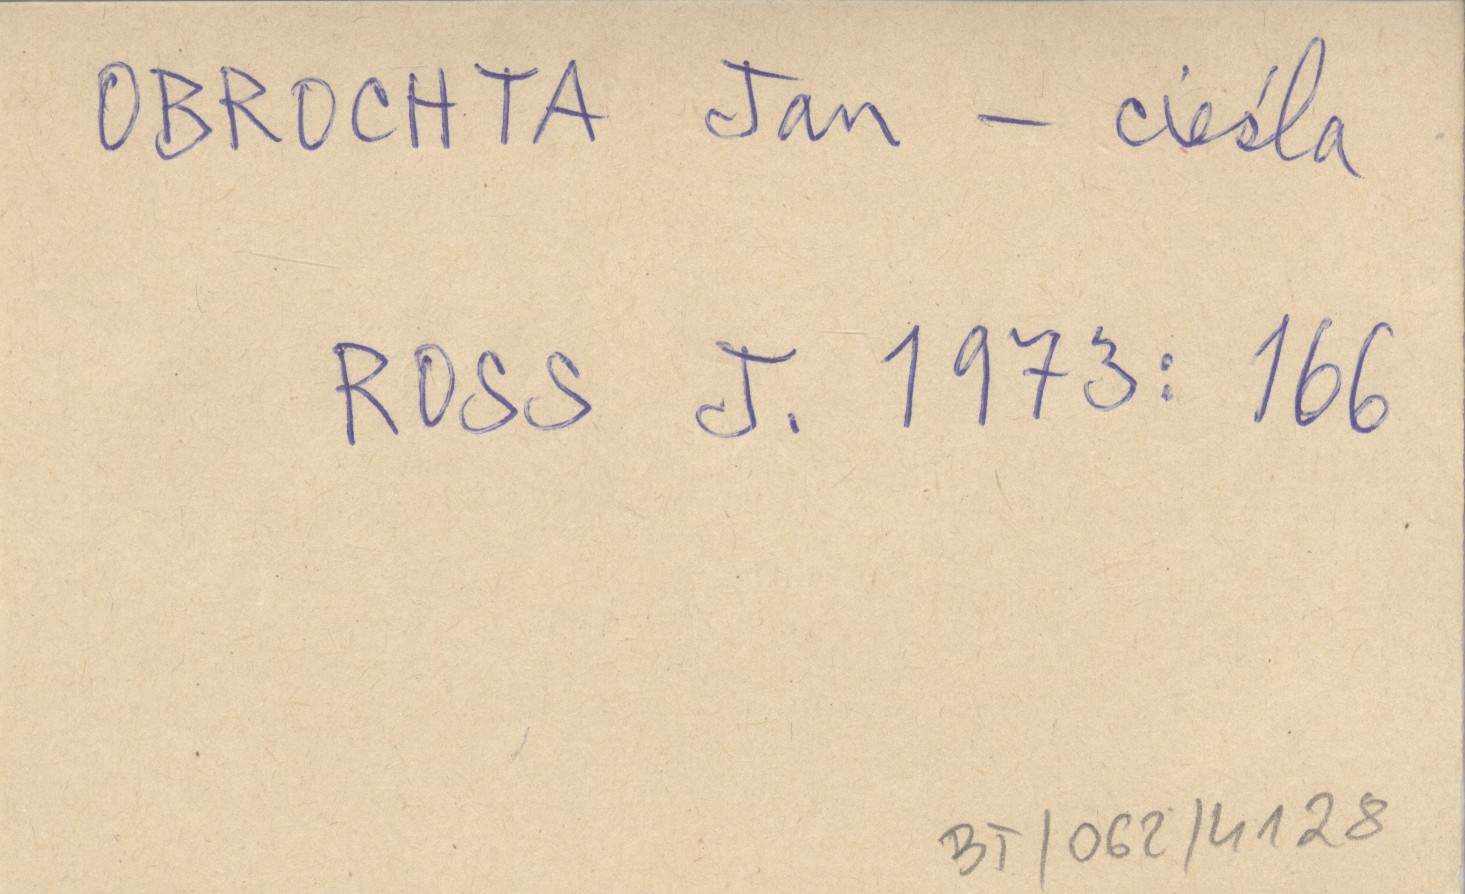 OBROCHTA Jan – cieśla
ROSS J. 1973: 166
BT/062/4128